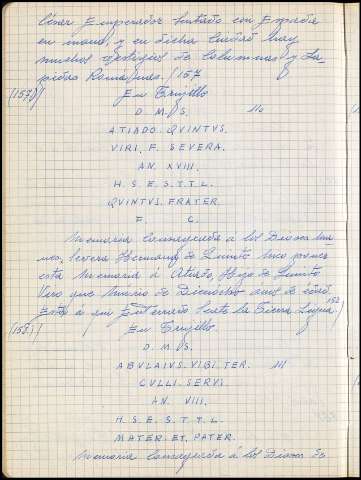 César Emperador sentado con Espada
en mano, y en dicha Ciudad hay
muchos vestigios de Columnas y La-
pidas Romanas. / 157
(157) / En Trujillo
D. M. S.
ATIADO QVINTVS.
VIRI. F. SEVERA.
AN. XVIII.
H. S. E. S. T. T. L.
QVINTVS. FRATER.
F. C.
Memoria Consagrada á los Dioses Ma-
nes, Severa Hermana de Quinto hizo poner
esta Memoria á Atiado Hijo de Quinto
Vero que Murió de Dieciocho años de edad
Está á quí Enterrado Seate la Tierra Ligera
En Trujillo
D. M. S.
ABVLAIVS. VIBI. TER.
CVLLI. SERVI.
AN. VIII.
H. S. E. S. T. T. L.
MATER. ET. PATER.
Memoria Consagrada á los Dioses